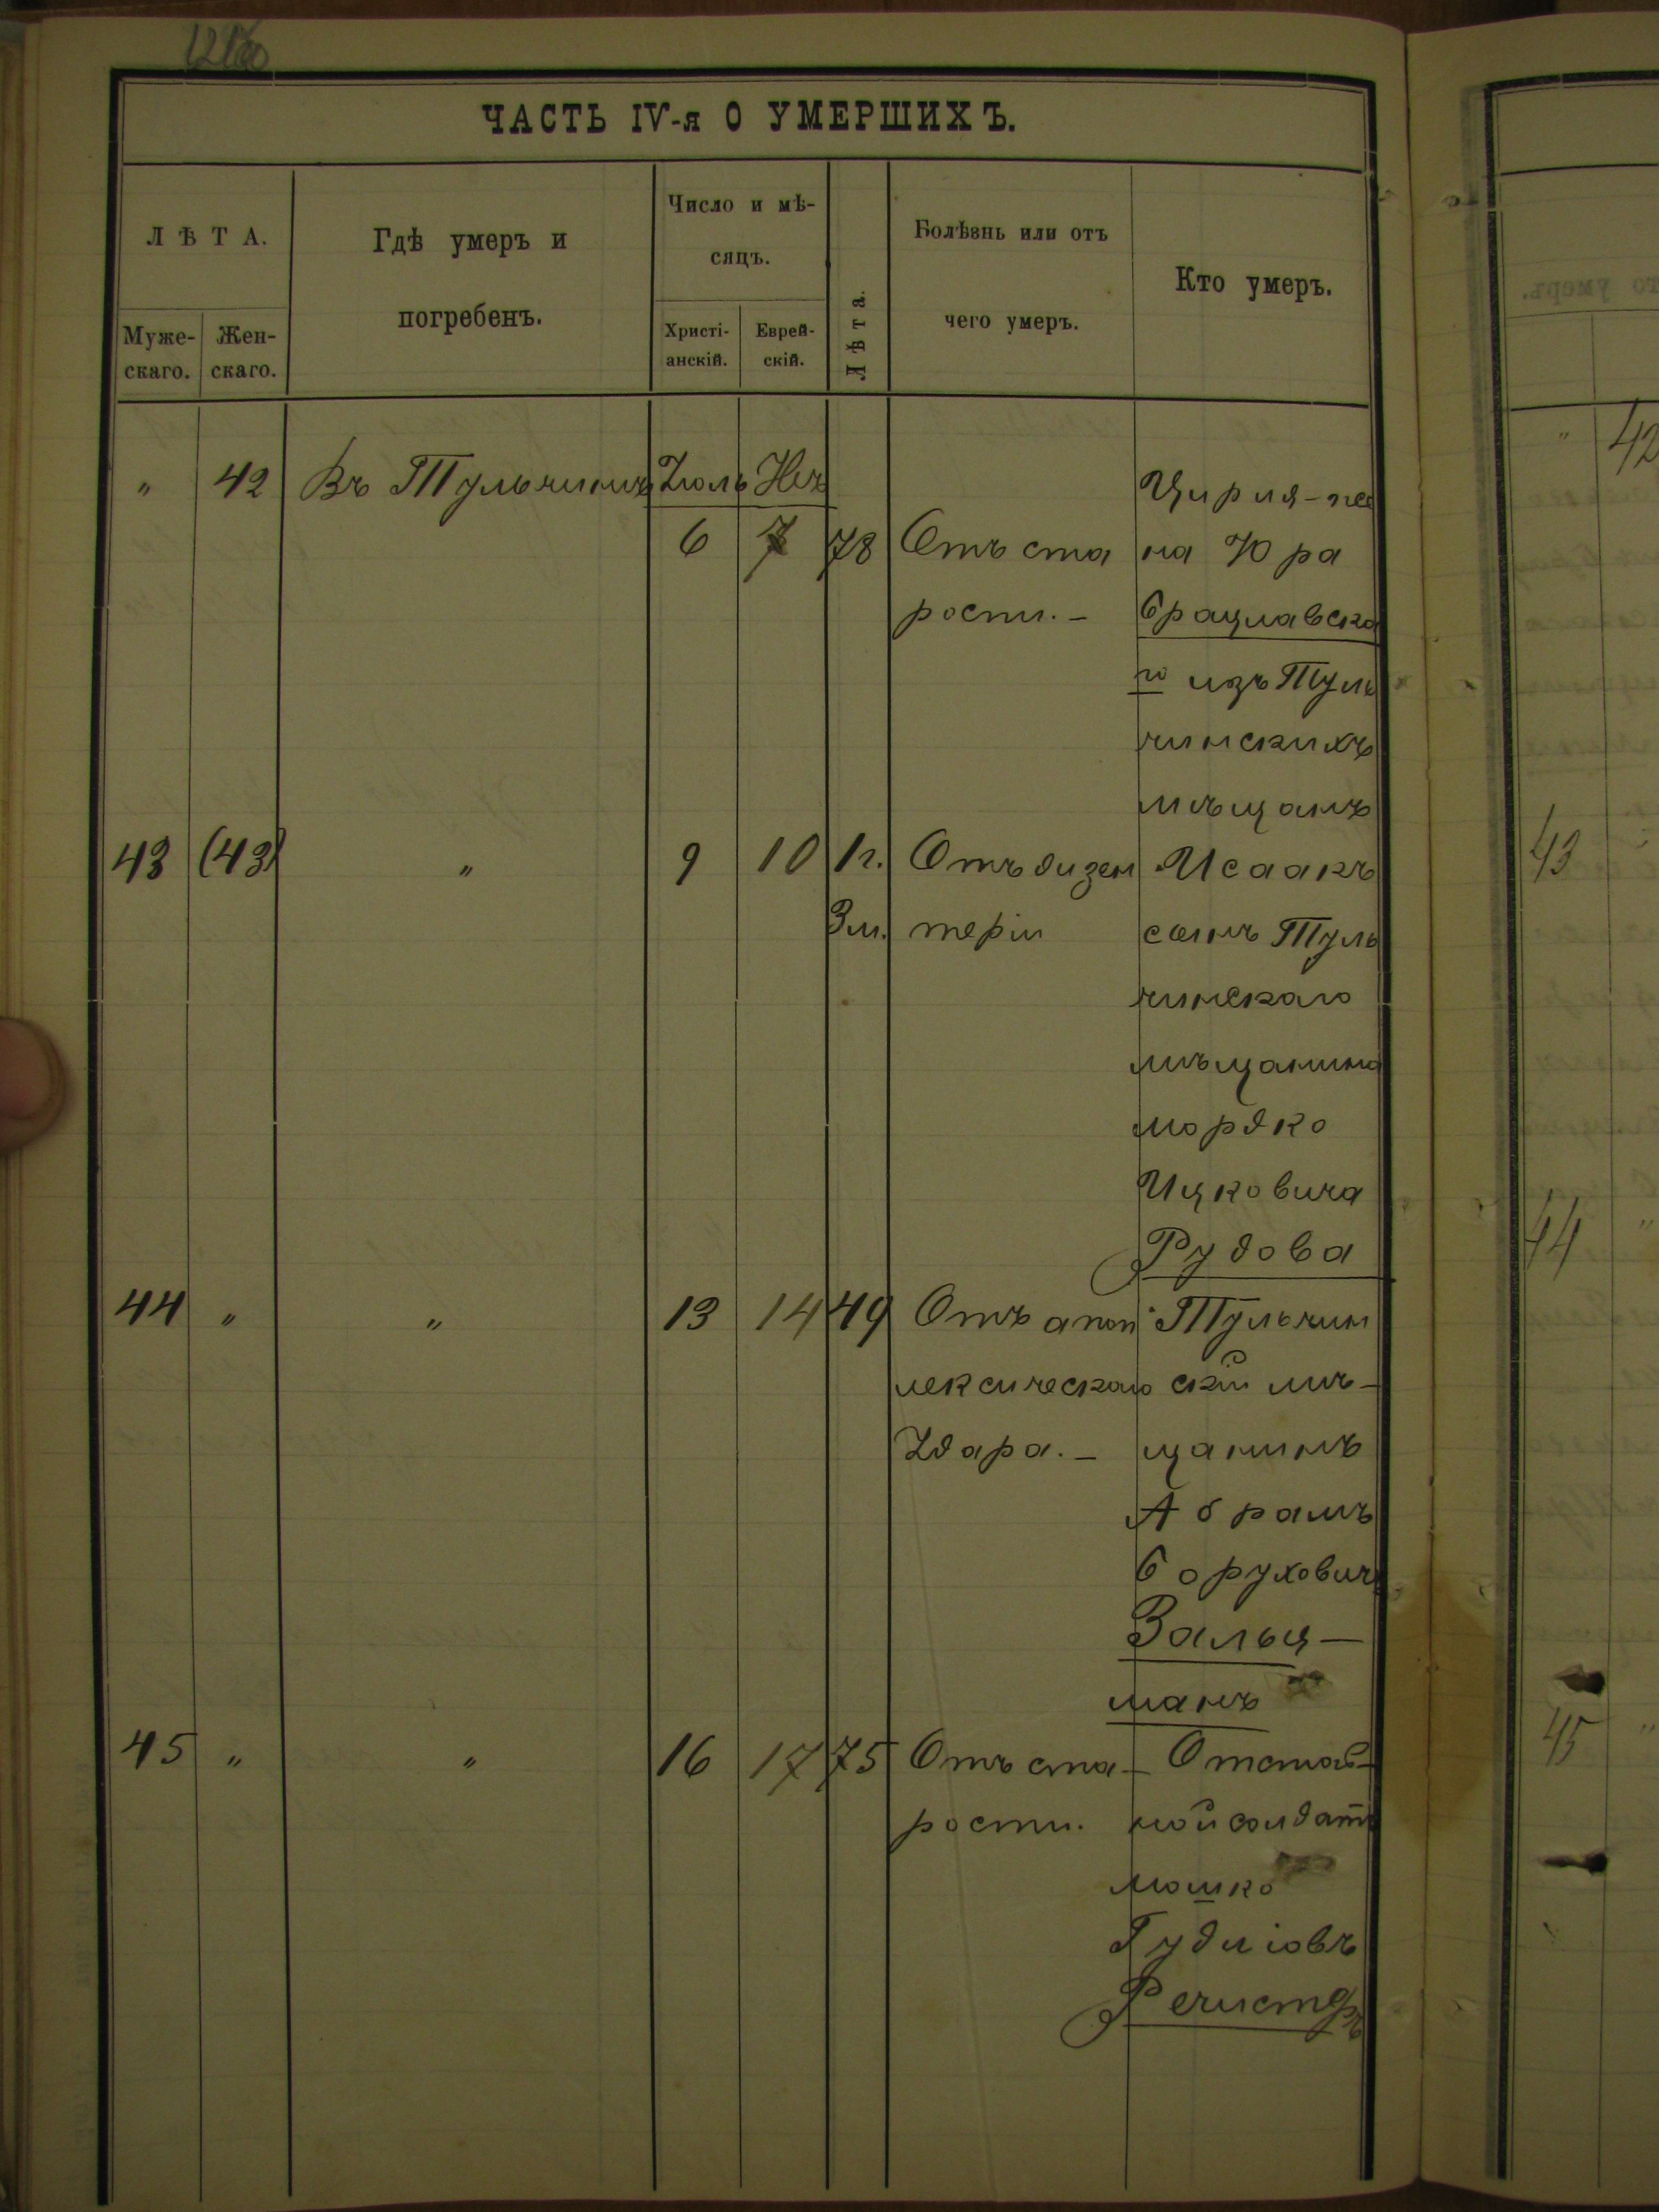 ЧАСТЬ IV-я О УМЕРШИХЪ.
ЛѢТА.
Мужескаго.
Женскаго.
Гдѣ умеръ и
погребенъ.
Число и мѣ-
сяцъ.
Христі-
анскій.
Еврей-
скій.
Лѣта.
Болѣзнь или отъ
чего умеръ.
Кто умеръ.
" 42 Въ Тульчинѣ Іюль
6 7 78 Отъ ста
рости. –
Цирия - же
на Юра
Брацлавска
го изъ Туль
чинскихъ
мѣщанъ
43 (43) " 9 10 1 г. Отъ дизен
3 м. теріи
Исаакъ
сынъ Туль
чинскаго
мѣщанина
Мордко
Ицковича
Рудова
44 " " 13 14 49 Отъ апоп
лексическаго
Удара. –
Тульчин
скій мѣ-
щанинъ
Абрамъ
Борухович
Зальц-
манъ
45 " " 16 17 75 Отъ ста-
рости.
Отстав-
ной солдатъ
Мошко
Гудиловъ
42
43
44
45